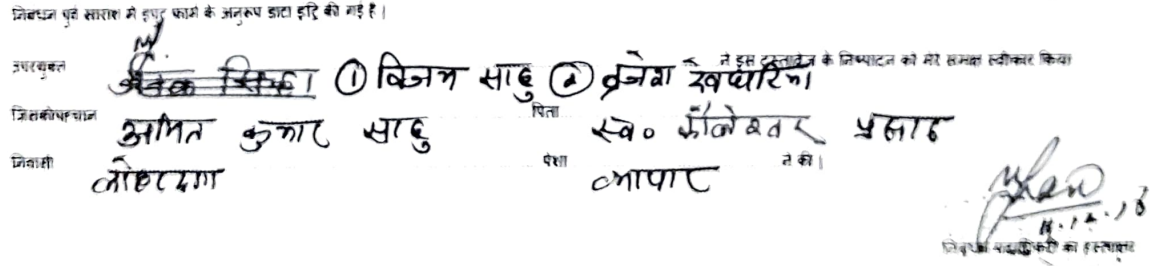 निबंधन पूर्व सारांश में इनपुट फार्म के अनुरूप डाटा इंट्रि की गई है।
उपरयुक्त ① विजय साहु ② ब्रजेश खेप्परिया ने इस दस्तावेज के निष्पादन को मेरे समक्ष स्वीकार किया
जिसकी पहचान अमित कुमार साहु पिता स्व० कौलेश्वर प्रसाद
निवासी लोहरदगा पेशा व्यापार ने की।
निबंधन पदाधिकारी का हस्ताक्षर